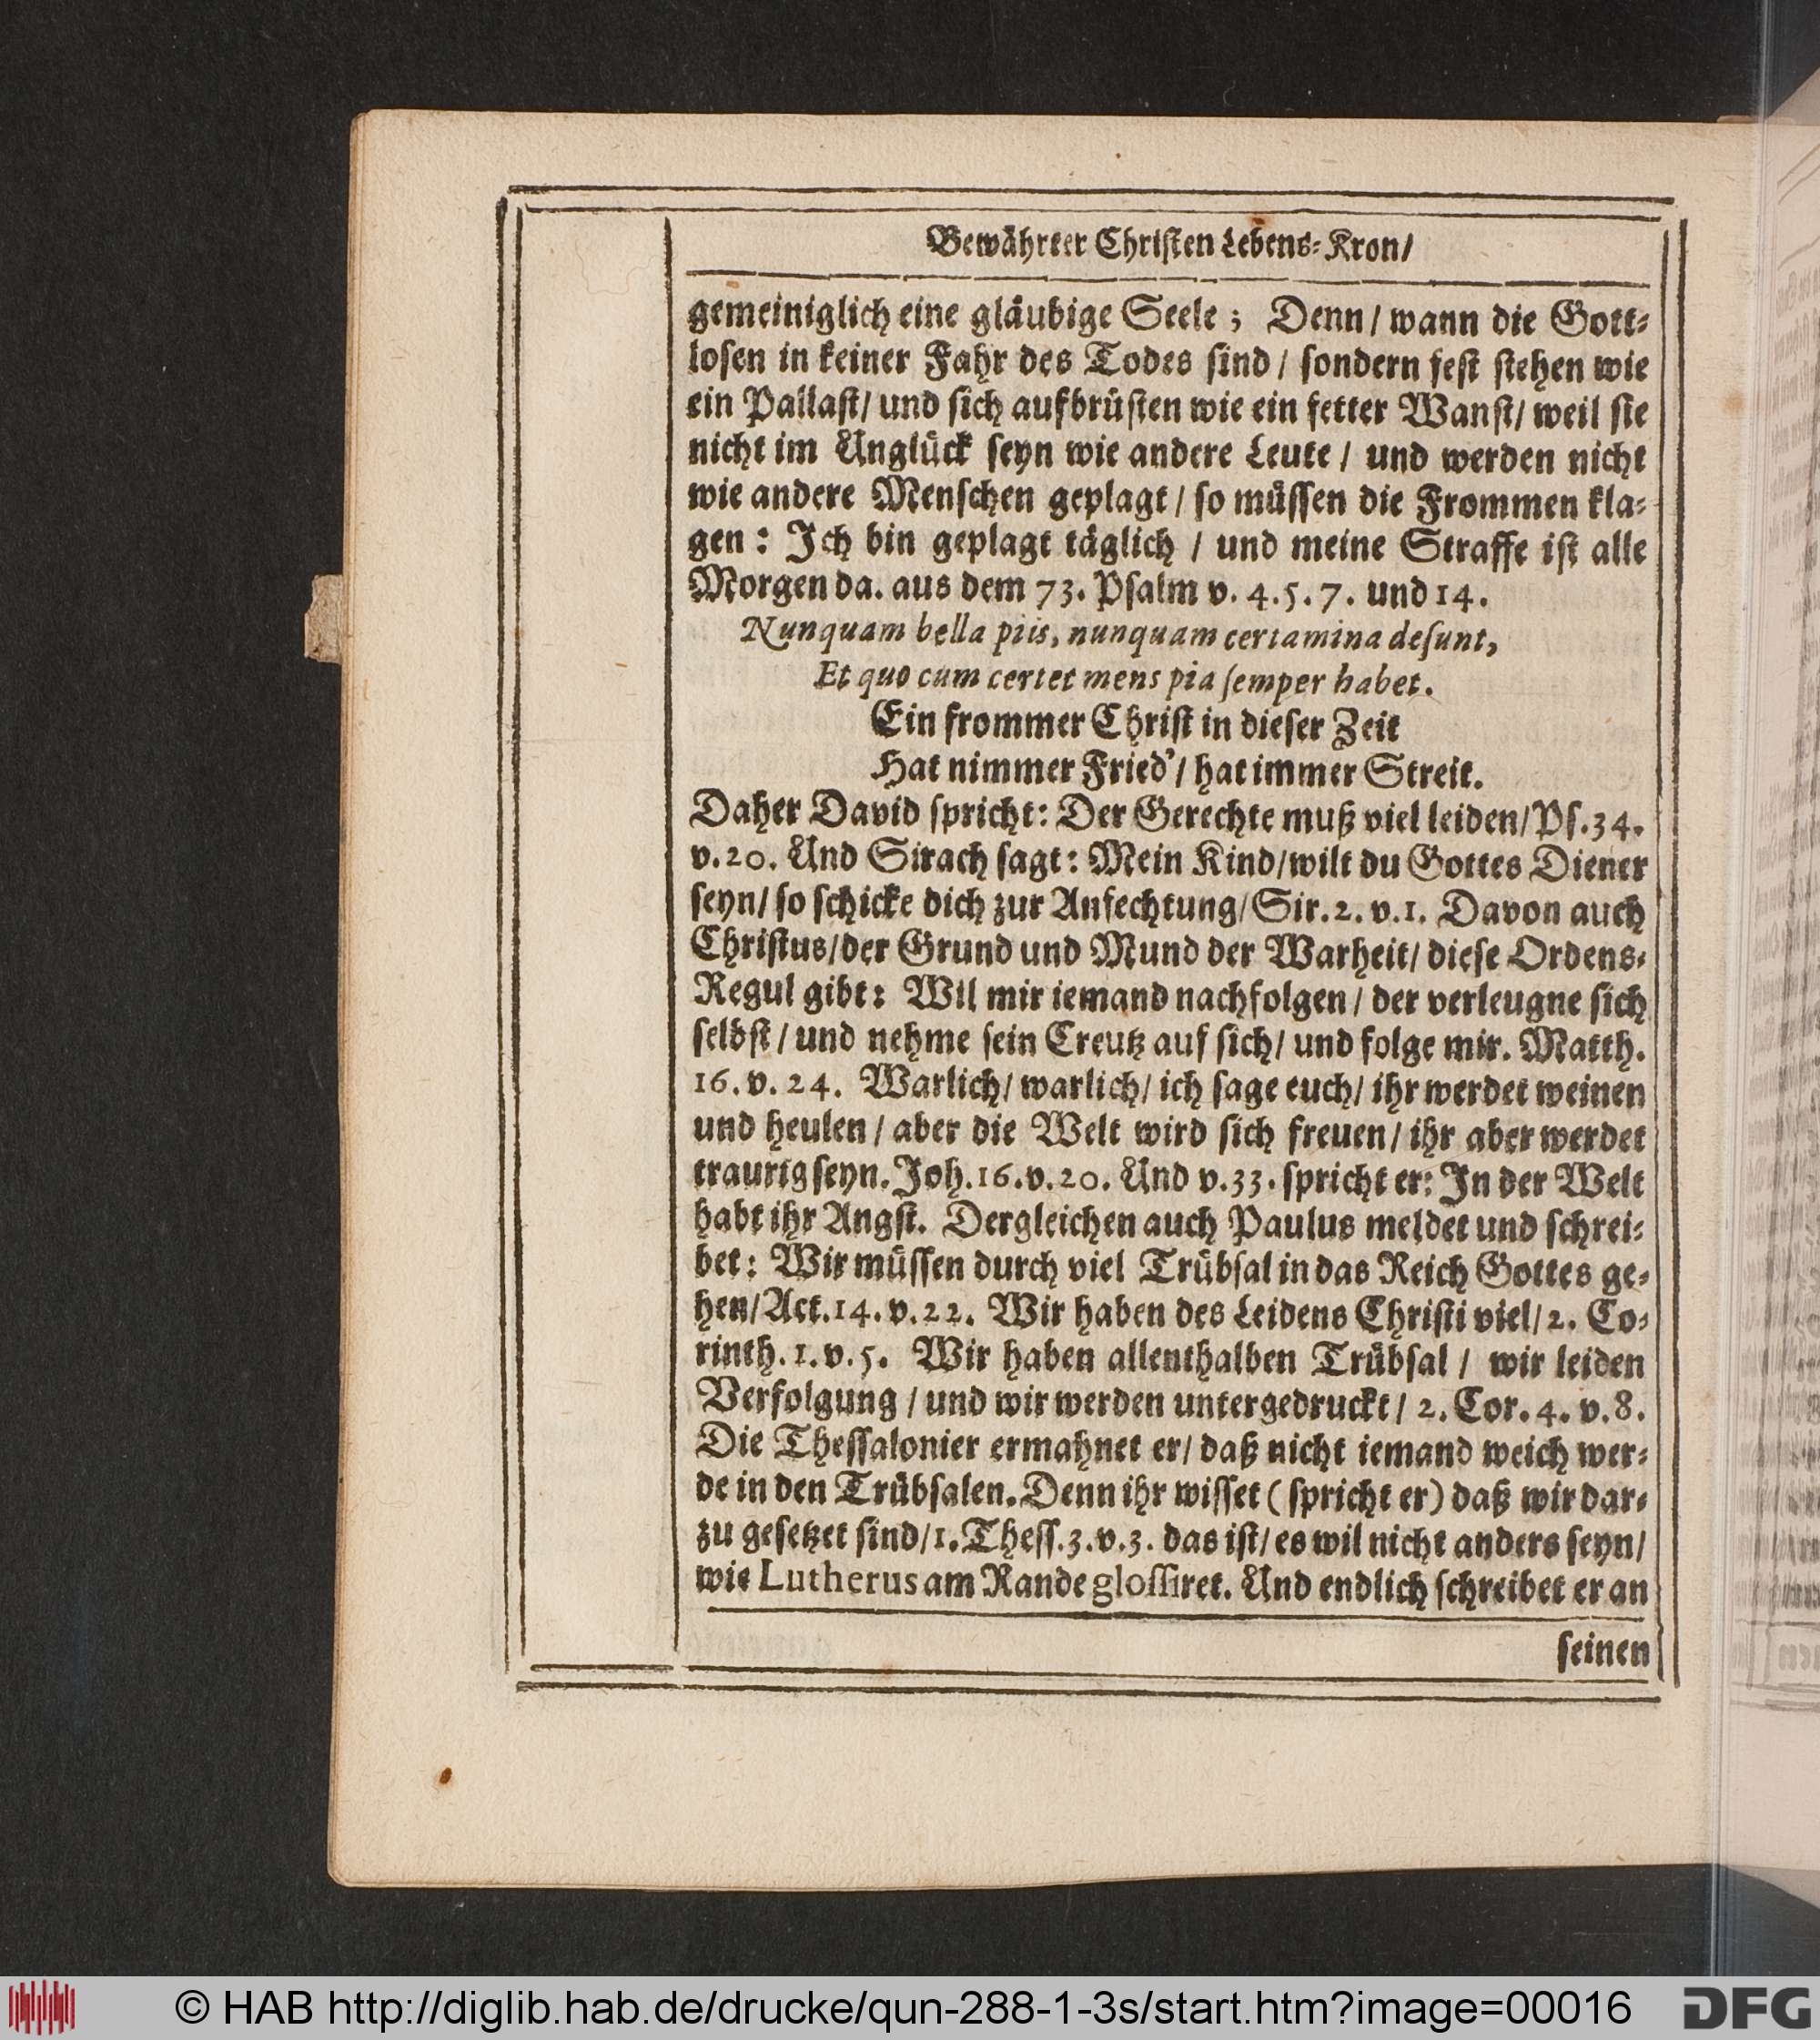 Bewährter Christen Lebens-Kron/
gemeiniglich eine gläubige Seele; Denn/ wann die Gott-
losen in keiner Fahr des Todes sind/ sondern fest stehen wie
ein Pallast/ und sich aufbrüsten wie ein fetter Wanst/ weil sie
nicht im Unglück seyn wie andere Leute/ und werden nicht
wie andere Menschen geplagt/ so müssen die Frommen kla-
gen: Ich bin geplagt täglich/ und meine Straffe ist alle
Morgen da. aus dem 73. Psalm v. 4. 5. 7. und 14.
Nunquam bella piis, nunquam certamina desunt,
Et quo cum certet mens pia semper habet.
Ein frommer Christ in dieser Zeit
Hat nimmer Fried'/ hat immer Streit.
Daher David spricht: Der Gerechte muß viel leiden/ Ps. 34.
v. 20. Und Sirach sagt: Mein Kind/ wilt du Gottes Diener
seyn/ so schicke dich zur Anfechtung/ Sir. 2. v. 1. Davon auch
Christus/ der Grund und Mund der Warheit/ diese Ordens-
Regul gibt: Wil mir iemand nachfolgen/ der verleugne sich
selbst/ und nehme sein Creutz auf sich/ und folge mir. Matth.
16. v. 24. Warlich/ warlich/ ich sage euch/ ihr werdet weinen
und heulen/ aber die Welt wird sich freuen/ ihr aber werdet
traurig seyn. Joh. 16. v. 20. Und v. 33. spricht er: In der Welt
habt ihr Angst. Dergleichen auch Paulus meldet und schrei-
bet: Wir müssen durch viel Trübsal in das Reich Gottes ge-
hen/ Act. 14. v. 22. Wir haben des Leidens Christi viel/ 2. Co-
rinth. 1. v. 5. Wir haben allenthalben Trübsal/ wir leiden
Verfolgung/ und wir werden untergedruckt/ 2. Cor. 4. v. 8.
Die Thessalonier ermahnet er/ daß nicht iemand weich wer-
de in den Trübsalen. Denn ihr wisset (spricht er) daß wir dar-
zu gesetzet sind/ 1. Thess. 3. v. 3. das ist/ es wil nicht anders seyn/
wie Lutherus am Rande glossiret. Und endlich schreibet er an
seinen
© HAB http://diglib.hab.de/drucke/qun-288-1-3s/start.htm?image=00016
DFG